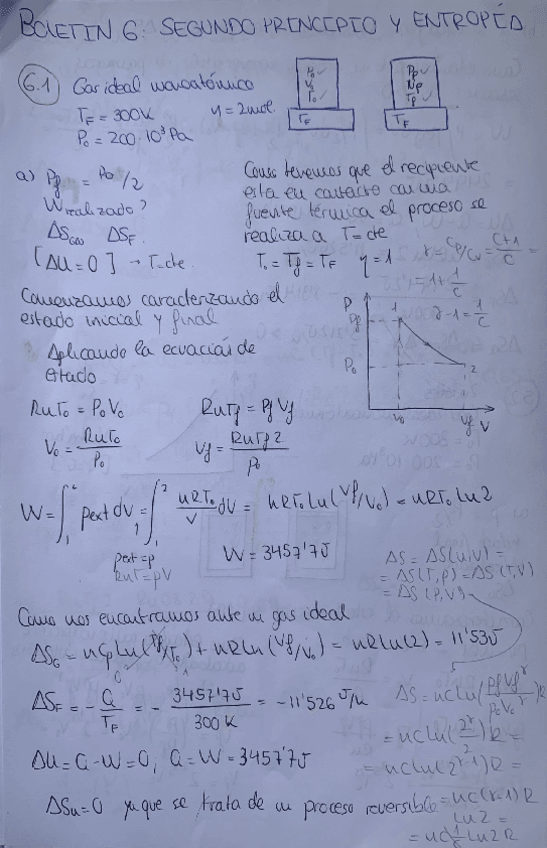 BOLETIN 6: SEGUNDO PRINCIPIO Y ENTROPÍA
6.1 Gas ideal monoatómico
T_F = 300K n = 2mol
P₀ = 200·10³ Pa
P₀ ✓
V₀ ✓
T₀ ✓
T_F
Pf ✓
Nf ✓
Tf ✓
T_F
a) Pf = P₀/2
W realizado?
ΔS_GAS ΔS_F
[ΔU = 0] → T=cte
Como tenemos que el recipiente
esta en contacto con una
fuente térmica el proceso se
realiza a T=cte
T₀ = Tf = T_F η = 1
γ = Cp/Cv = C+1/C =
= 1 + 1/C
γ-1 = 1/C
Comenzamos caracterizando el
estado inicial y final
Aplicando la ecuación de
estado
P
Pf
P₀
1
2
V₀ Vf V
RnT₀ = P₀V₀ RnTf = PfVf
V₀ = RnT₀/P₀ Vf = RnTf 2/P₀
W = ∫₁² pext dV = ∫₁² nRT₀/V dV = nRT₀ Ln(Vf/V₀) = nRT₀ Ln2
pext = p
RnT = pV
W = 3457'7J
ΔS = ΔS(u,v) =
= ΔS(T,p) = ΔS(T,V)
= ΔS(P,V)
Como nos encontramos ante un gas ideal
ΔS_G = nCp Ln(Tf/T₀) + nR Ln(Vf/V₀) = nR Ln(2) = 11'53J
ΔS_F = -Q/T_F = - 3457'7J/300K = -11'526 J/K
ΔS = nc Ln(PfVf^γ/P₀V₀^γ)R
= nc Ln(2^γ/2)R =
= nc Ln(2^γ-1)R =
= nc(γ-1)R
Ln2 =
= nc 1/C Ln2 R
ΔU = Q-W = 0; Q = W = 3457'7J
ΔSu = 0 ya que se trata de un proceso reversible